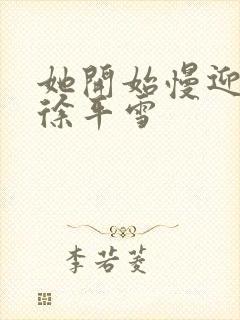 她開始慢迎
徐平雪
李若菱